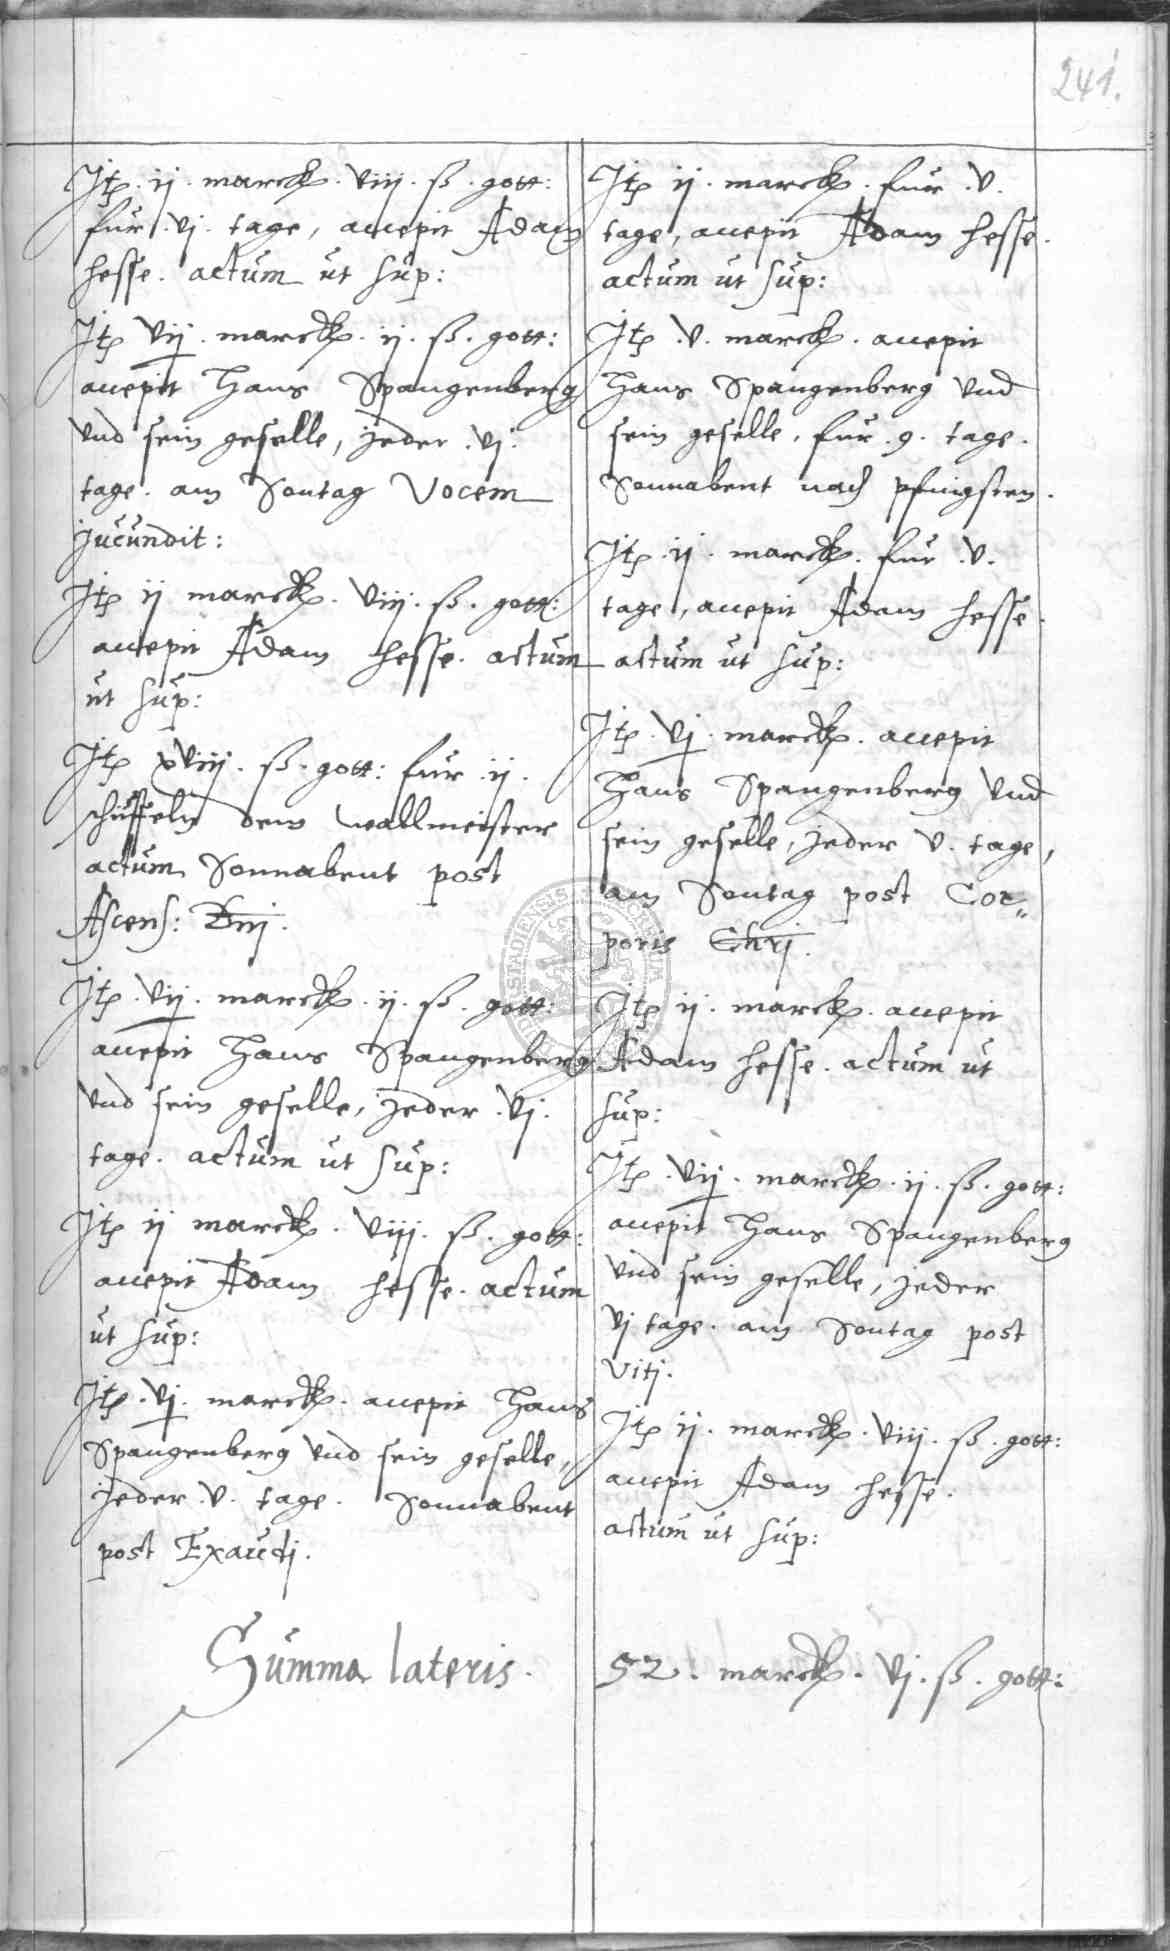 241.
Jtẽ .ij. marck. viij. ß. gott:
fur .vj. tage, accepit Adam
Hesse. actum ut sup:
Jtẽ vij. marck. ij. ß. gott:
accepit Hans Spangenberg
vnd sein geselle, jeder .vj.
tage. am Sontag Vocem
jucundit:
Jtẽ ij marck. viij. ß. gott:
accepit Adam Hesse. actum
ut sup:
Jtẽ xviij. ß. gott: fur .ij.
schuffeln dem wallmeister
actum Sonnabent post
Ascens: Dnj.
Jtẽ .vij. marck. ij. ß. gott:
accepit Hans Spangenberg
vnd sein geselle, jeder .vj.
tage. actum ut sup:
Jtẽ ij marck. viij. ß. gott:
accepit Adam Hesse. actum
ut sup:
Jtẽ .vj. marck. accepit Hans
Spangenberg vnd sein geselle,
jeder .v. tage. Sonnabent
post Exaudj.
Jtẽ ij. marck. fur .v.
tage, accepit Adam Hesse.
actum ut sup:
Jtẽ .v. marck. accepit
Hans Spangenberg vnd
sein geselle, fur .9. tage.
Sonnabent nach pfingsten.
Jtẽ .ij. marck. fur .v.
tage, accepit Adam Hesse.
actum ut sup:
Jtẽ .vj. marck. accepit
Hans Spangenberg vnd
sein geselle, jeder v. tage,
am Sontag post Cor„
poris Chrj.
Jtẽ ij. marck. accepit
Adam Hesse. actum ut
sup:
Jtẽ .vij. marck. ij. ß. gott:
accepit Hans Spangenberg
vnd sein geselle, jeder
vj tage. am Sontag post
Vitj.
Jtẽ ij. marck. viij. ß. gott:
accepit Adam Hesse.
actum ut sup:
Summa lateris. 52. marck. vj. ß. gott: